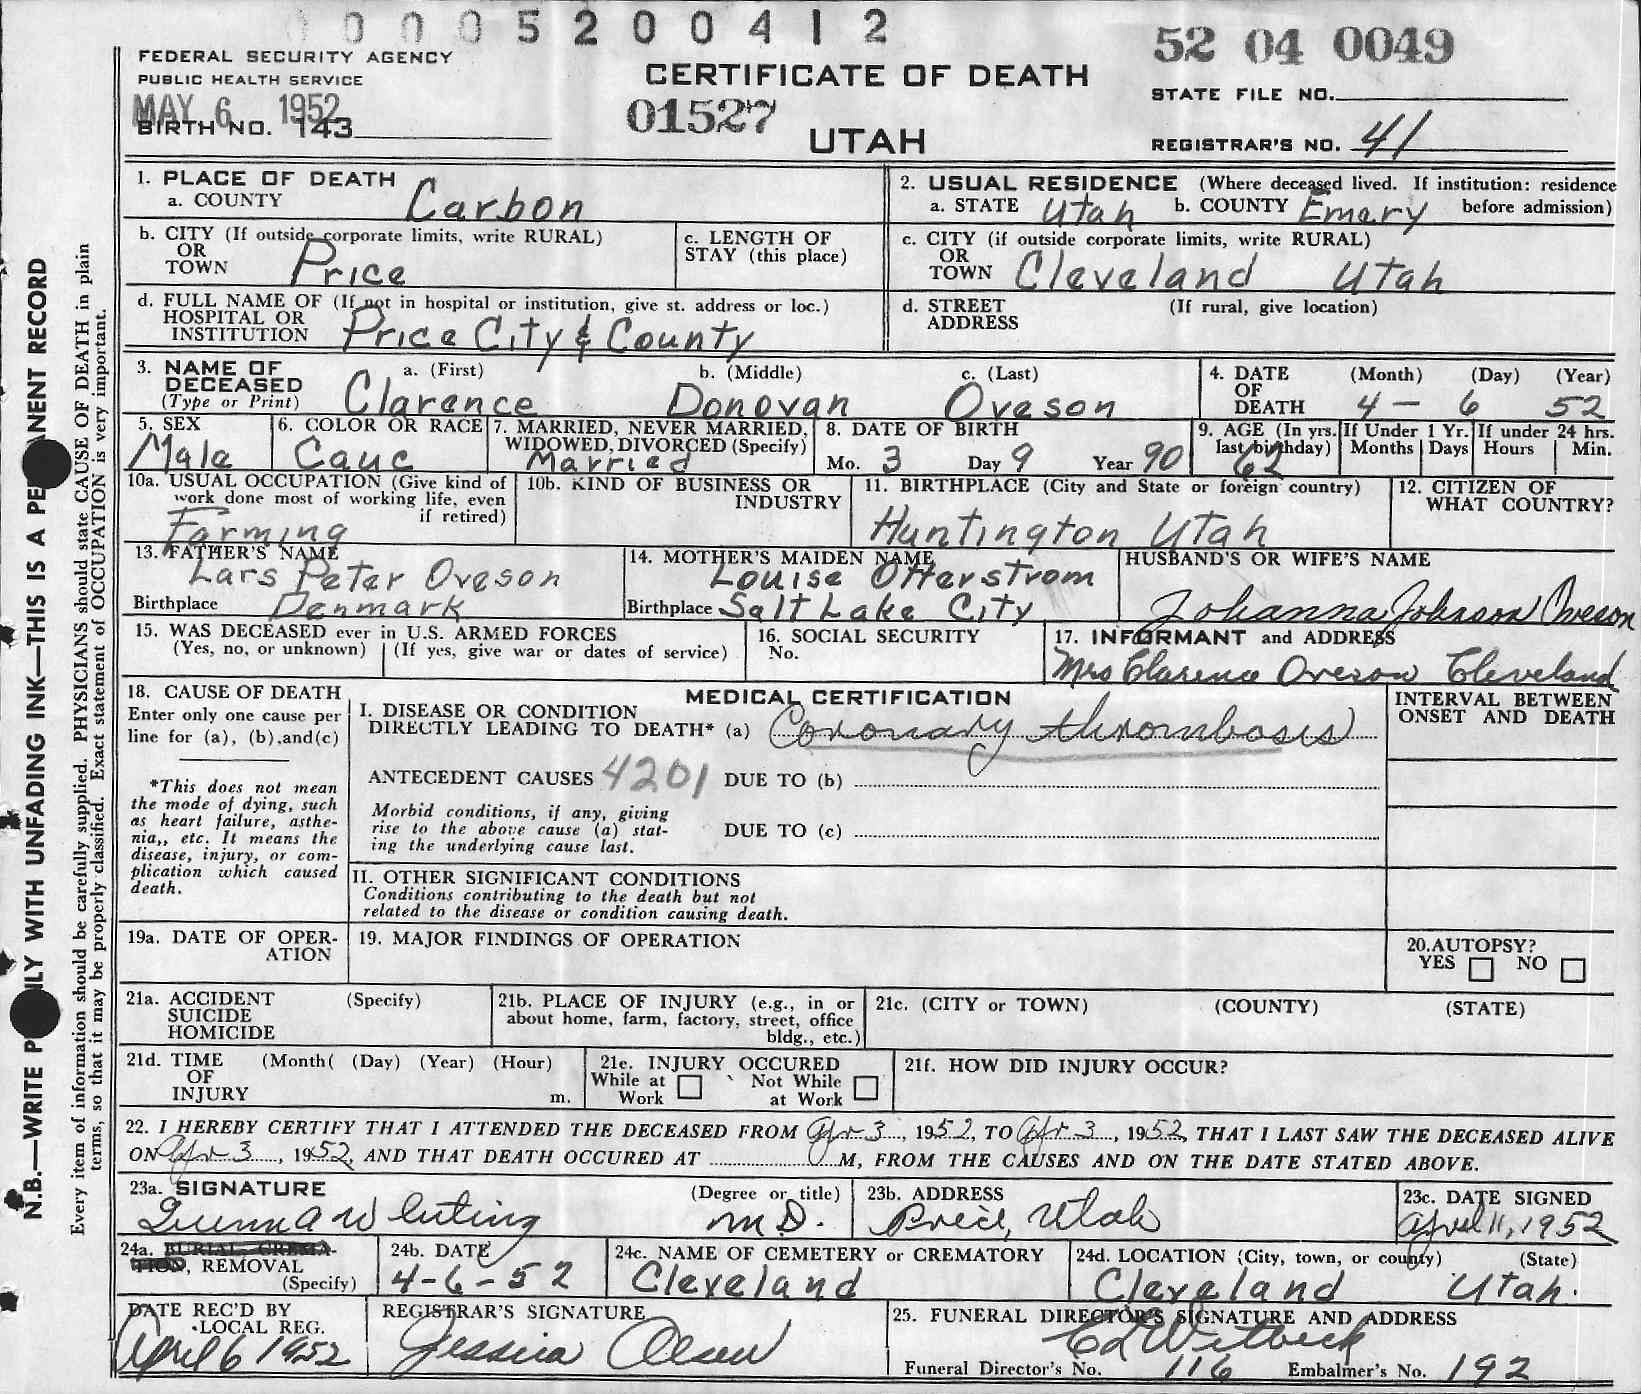 0 0 0 5 2 0 0 4 1 2
52 04 0049
FEDERAL SECURITY AGENCY
PUBLIC HEALTH SERVICE
CERTIFICATE OF DEATH
STATE FILE NO.
MAY 6 1952
BIRTH NO. 143
01527
UTAH
REGISTRAR'S NO. 41
1. PLACE OF DEATH
a. COUNTY Carbon
2. USUAL RESIDENCE (Where deceased lived. If institution: residence before admission)
a. STATE Utah b. COUNTY Emery
b. CITY (If outside corporate limits, write RURAL)
OR
TOWN Price
c. LENGTH OF
STAY (this place)
c. CITY (if outside corporate limits, write RURAL)
OR
TOWN Cleveland Utah
d. FULL NAME OF (If not in hospital or institution, give st. address or loc.)
HOSPITAL OR
INSTITUTION Price City & County
d. STREET (If rural, give location)
ADDRESS
3. NAME OF DECEASED (Type or Print)
a. (First) b. (Middle) c. (Last)
Clarence Donovan Oveson
4. DATE OF DEATH (Month) (Day) (Year)
4 - 6 52
5. SEX
Male
6. COLOR OR RACE
Cauc
7. MARRIED, NEVER MARRIED,
WIDOWED, DIVORCED (Specify)
Married
8. DATE OF BIRTH
Mo. 3 Day 9 Year 90
9. AGE (In yrs. last birthday) 62
If Under 1 Yr. Months Days
If under 24 hrs. Hours Min.
10a. USUAL OCCUPATION (Give kind of
work done most of working life, even
if retired)
Farming
10b. KIND OF BUSINESS OR
INDUSTRY
11. BIRTHPLACE (City and State or foreign country)
Huntington Utah
12. CITIZEN OF
WHAT COUNTRY?
13. FATHER'S NAME
Lars Peter Oveson
Birthplace Denmark
14. MOTHER'S MAIDEN NAME
Louise Otterstrom
Birthplace Salt Lake City
HUSBAND'S OR WIFE'S NAME
Johanna Johnson Oveson
15. WAS DECEASED ever in U.S. ARMED FORCES
(Yes, no, or unknown) (If yes, give war or dates of service)
16. SOCIAL SECURITY
No.
17. INFORMANT and ADDRESS
Mrs Clarence Oveson Cleveland
18. CAUSE OF DEATH
Enter only one cause per
line for (a), (b),and(c)
*This does not mean
the mode of dying, such
as heart failure, asthe-
nia,, etc. It means the
disease, injury, or com-
plication which caused
death.
MEDICAL CERTIFICATION
I. DISEASE OR CONDITION
DIRECTLY LEADING TO DEATH* (a) Coronary thrombosis
ANTECEDENT CAUSES 4201 DUE TO (b)
Morbid conditions, if any, giving
rise to the above cause (a) stat-
ing the underlying cause last.
DUE TO (c)
II. OTHER SIGNIFICANT CONDITIONS
Conditions contributing to the death but not
related to the disease or condition causing death.
INTERVAL BETWEEN
ONSET AND DEATH
19a. DATE OF OPER-
ATION
19. MAJOR FINDINGS OF OPERATION
20.AUTOPSY?
YES NO
21a. ACCIDENT (Specify)
SUICIDE
HOMICIDE
21b. PLACE OF INJURY (e.g., in or
about home, farm, factory, street, office
bldg., etc.)
21c. (CITY or TOWN) (COUNTY) (STATE)
21d. TIME (Month( (Day) (Year) (Hour)
OF
INJURY m.
21e. INJURY OCCURED
While at Work Not While at Work
21f. HOW DID INJURY OCCUR?
22. I HEREBY CERTIFY THAT I ATTENDED THE DECEASED FROM Apr 3, 1952, TO Apr 3, 1952, THAT I LAST SAW THE DECEASED ALIVE
ON Apr 3, 1952, AND THAT DEATH OCCURED AT M, FROM THE CAUSES AND ON THE DATE STATED ABOVE.
23a. SIGNATURE (Degree or title)
M.D.
23b. ADDRESS
Price, Utah
23c. DATE SIGNED
April 11, 1952
24a. BURIAL, CREMA-
TION, REMOVAL
(Specify)
24b. DATE
4-6-52
24c. NAME OF CEMETERY or CREMATORY
Cleveland
24d. LOCATION (City, town, or county) (State)
Cleveland Utah.
DATE REC'D BY
LOCAL REG.
April 6 1952
REGISTRAR'S SIGNATURE
Jessica Olsen
25. FUNERAL DIRECTOR'S SIGNATURE AND ADDRESS
Ed Witbeck
Funeral Director's No. 116 Embalmer's No. 192
N.B.—WRITE P NLY WITH UNFADING INK—THIS IS A PE NENT RECORD
Every item of information should be carefully supplied. PHYSICIANS should state CAUSE OF DEATH in plain
terms, so that it may be properly classified. Exact statement of OCCUPATION is very important.